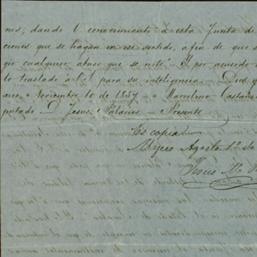 nis, dando conocimiento á esta Junta de
ciones que se hagan en ese sentido, afin de que s
gir cualquier abuso que se note. Y por acuerdo
lo traslado á U. para su inteligencia. Dios y
Noviembre 10 de 1857.
putado D. Palacios. Presente
Es copia.
Mejico Agosto 1º de